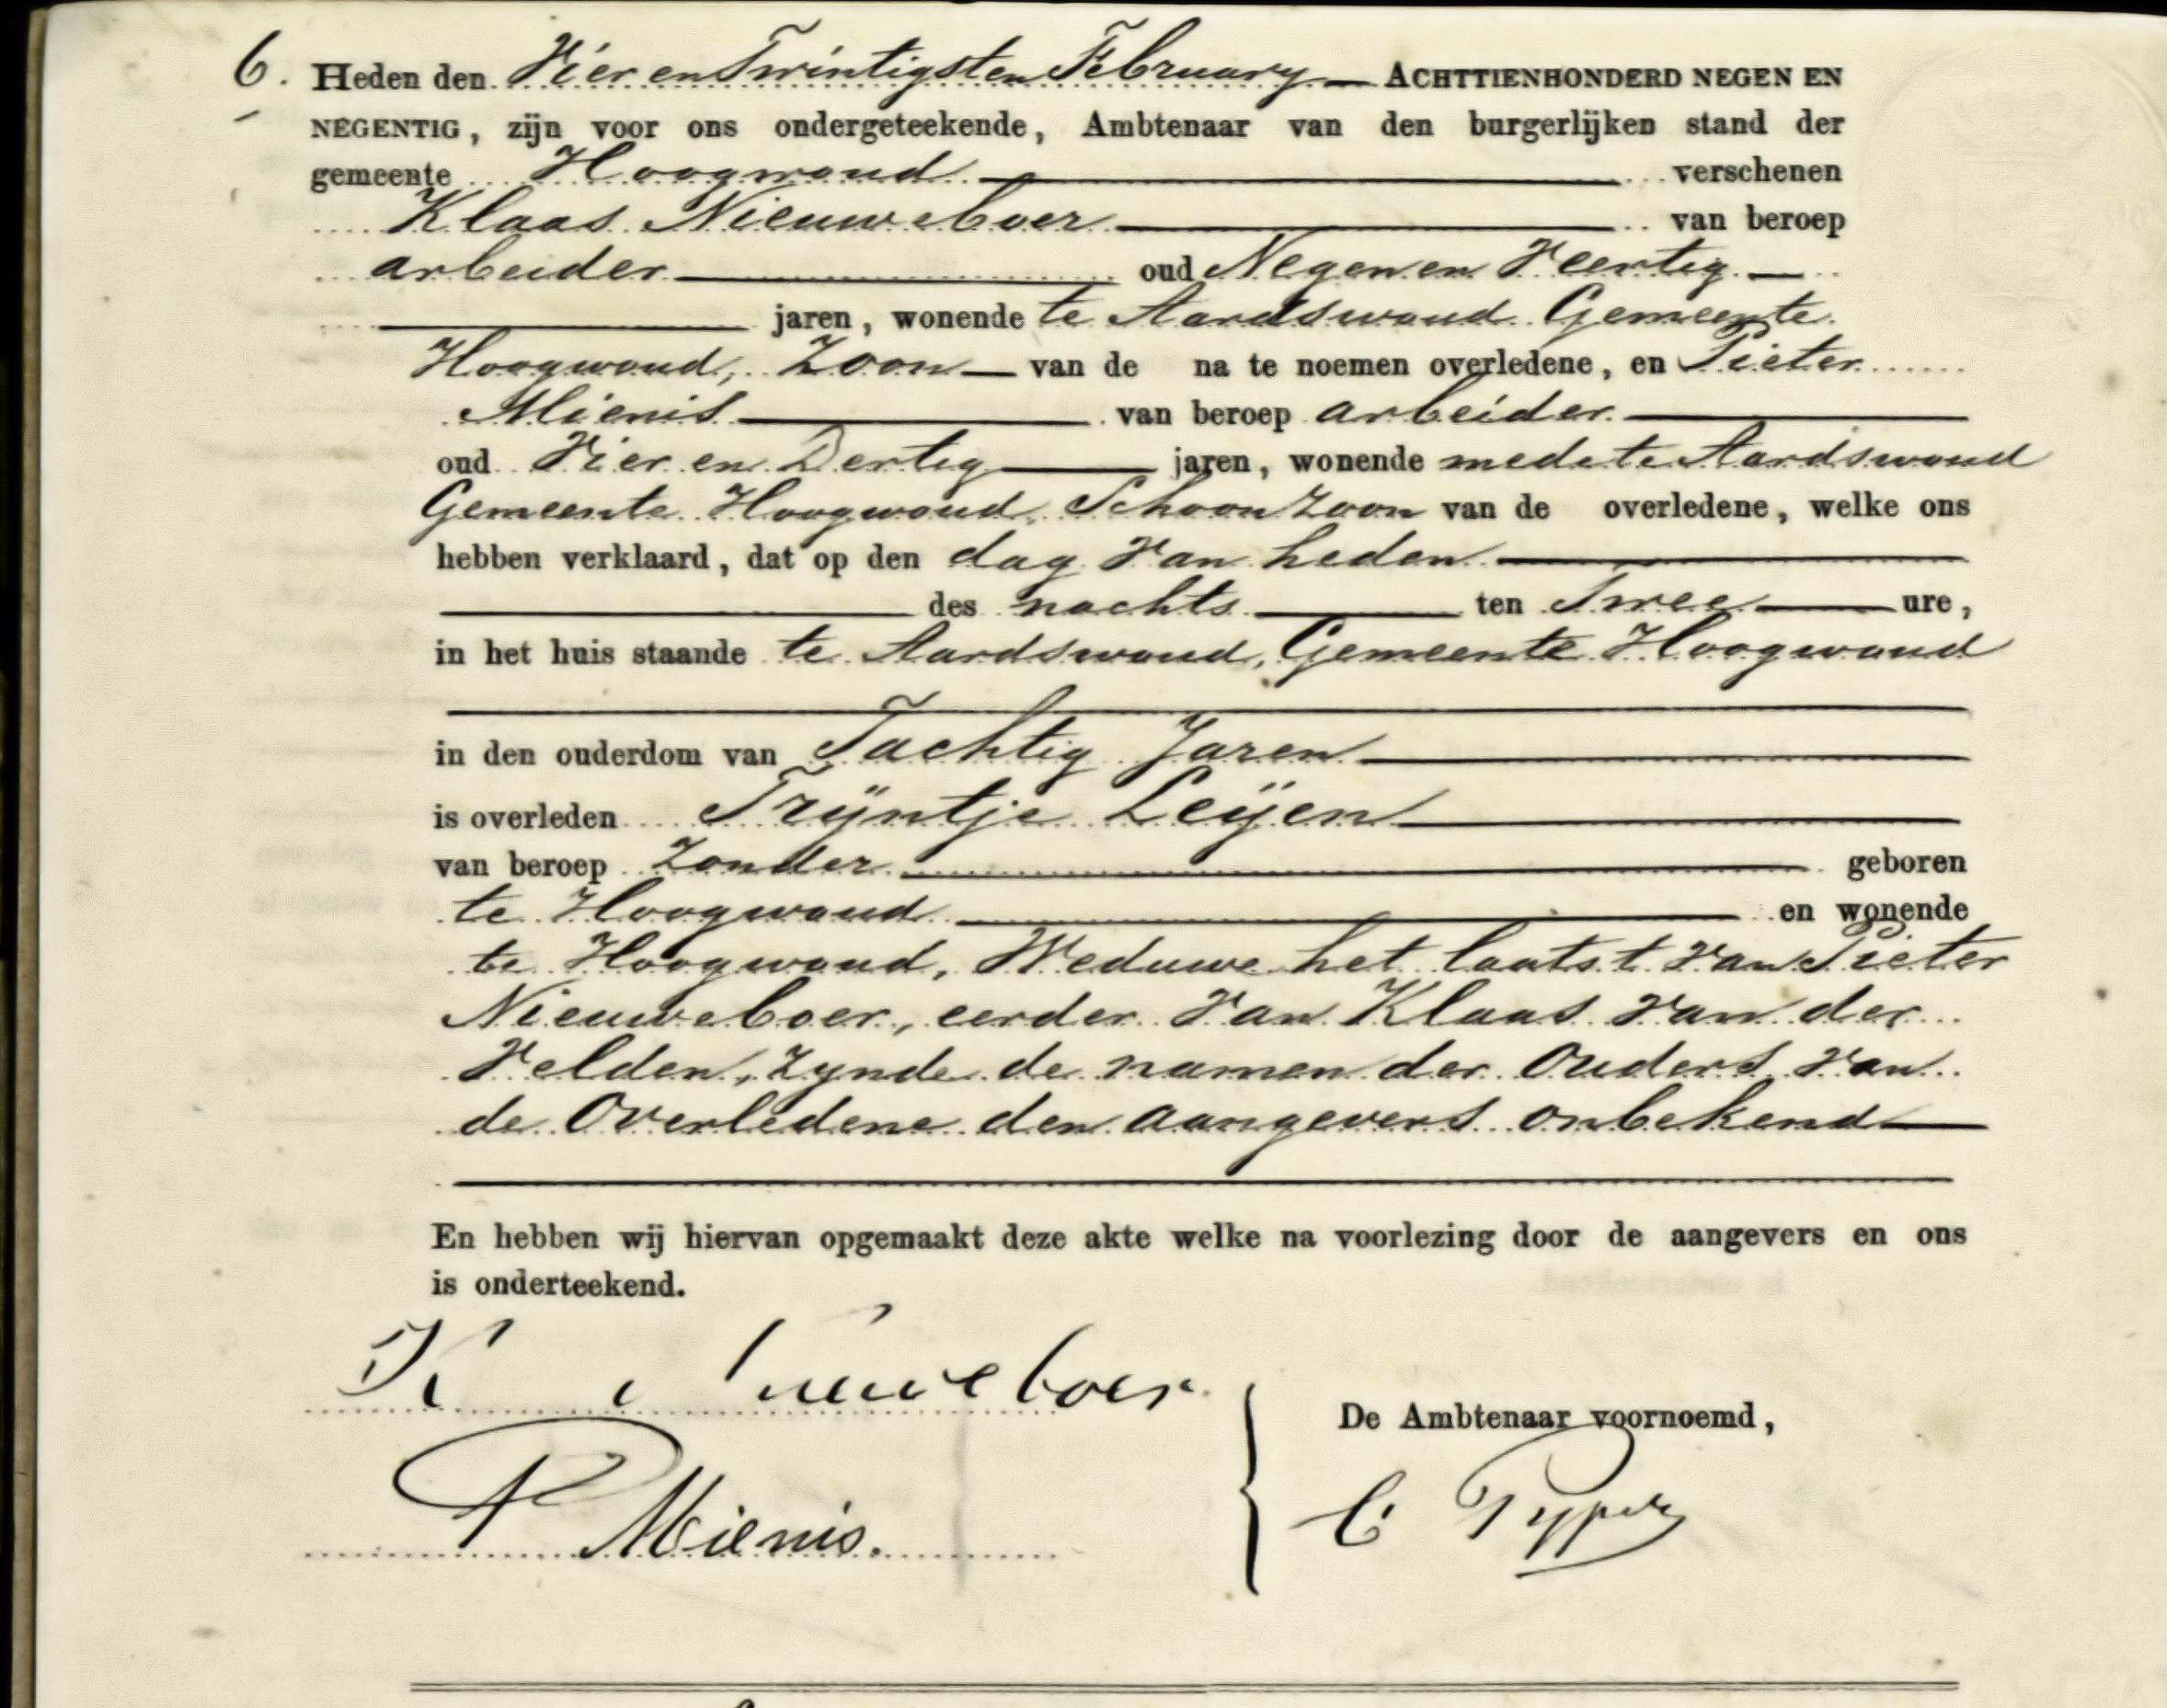 6. Heden den Vier en Twintigsten February ACHTTIENHONDERD NEGEN EN
NEGENTIG, zijn voor ons ondergeteekende, Ambtenaar van den burgerlijken stand der
gemeente Hoogwoud verschenen
Klaas Nieuweboer van beroep
arbeider oud Negen en Veertig
jaren, wonende te Aardswoud Gemeente
Hoogwoud, Zoon van de na te noemen overledene, en Pieter
Mienis van beroep arbeider
oud Vier en Dertig jaren, wonende mede te Aardswoud
Gemeente Hoogwoud, Schoonzoon van de overledene, welke ons
hebben verklaard, dat op den dag van heden
des nachts ten Twee ure,
in het huis staande te Aardswoud, Gemeente Hoogwoud
in den ouderdom van Tachtig Jaren
is overleden Trijntje Leijen
van beroep Zonder geboren
te Hoogwoud en wonende
te Hoogwoud, Weduwe het laatst van Pieter
Nieuweboer, eerder van Klaas van der
Velden, zynde de namen der Ouders van
de Overledene den aangevers onbekend
En hebben wij hiervan opgemaakt deze akte welke na voorlezing door de aangevers en ons
is onderteekend.
K Nieuweboer
De Ambtenaar voornoemd,
P Mienis.
C Pyper